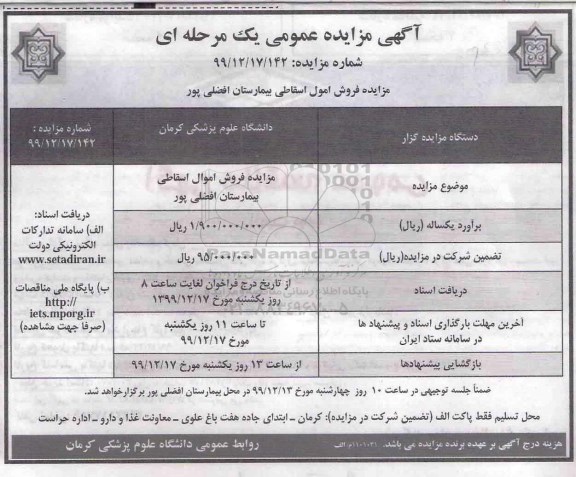 آگهی مزایده عمومی یک مرحله ای
شماره مزایده: ۹۹/۱۲/۱۷/۱۴۲
مزایده فروش امول اسقاطی بیمارستان افضلی پور
دستگاه مزایده گزار
دانشگاه علوم پزشکی کرمان
شماره مزایده :
۹۹/۱۲/۱۷/۱۴۲
موضوع مزایده
مزایده فروش اموال اسقاطی
بیمارستان افضلی پور
برآورد یکساله (ریال)
۱/۹۰۰/۰۰۰/۰۰۰ ریال
تضمین شرکت در مزایده(ریال)
۹۵/۰۰۰/۰۰۰ ریال
دریافت اسناد
از تاریخ درج فراخوان لغایت ساعت ۸
روز یکشنبه مورخ ۱۳۹۹/۱۲/۱۷
آخرین مهلت بارگذاری اسناد و پیشنهاد ها
در سامانه ستاد ایران
تا ساعت ۱۱ روز یکشنبه
مورخ ۹۹/۱۲/۱۷
بازگشایی پیشنهادها
از ساعت ۱۳ روز یکشنبه مورخ ۹۹/۱۲/۱۷
دریافت اسناد:
الف) سامانه تدارکات
الکترونیکی دولت
www.setadiran.ir
ب) پایگاه ملی مناقصات
http://
iets.mporg.ir
(صرفا جهت مشاهده)
ضمناً جلسه توجیهی در ساعت ۱۰ روز چهارشنبه مورخ ۹۹/۱۲/۱۳ در محل بیمارستان افضلی پور برگزارخواهد شد.
محل تسلیم فقط پاکت الف (تضمین شرکت در مزایده): کرمان ـ ابتدای جاده هفت باغ علوی ـ معاونت غذا و دارو ـ اداره حراست
هزینه درج آگهی بر عهده برنده مزایده می باشد.
روابط عمومی دانشگاه علوم پزشکی کرمان
ParsNamadData